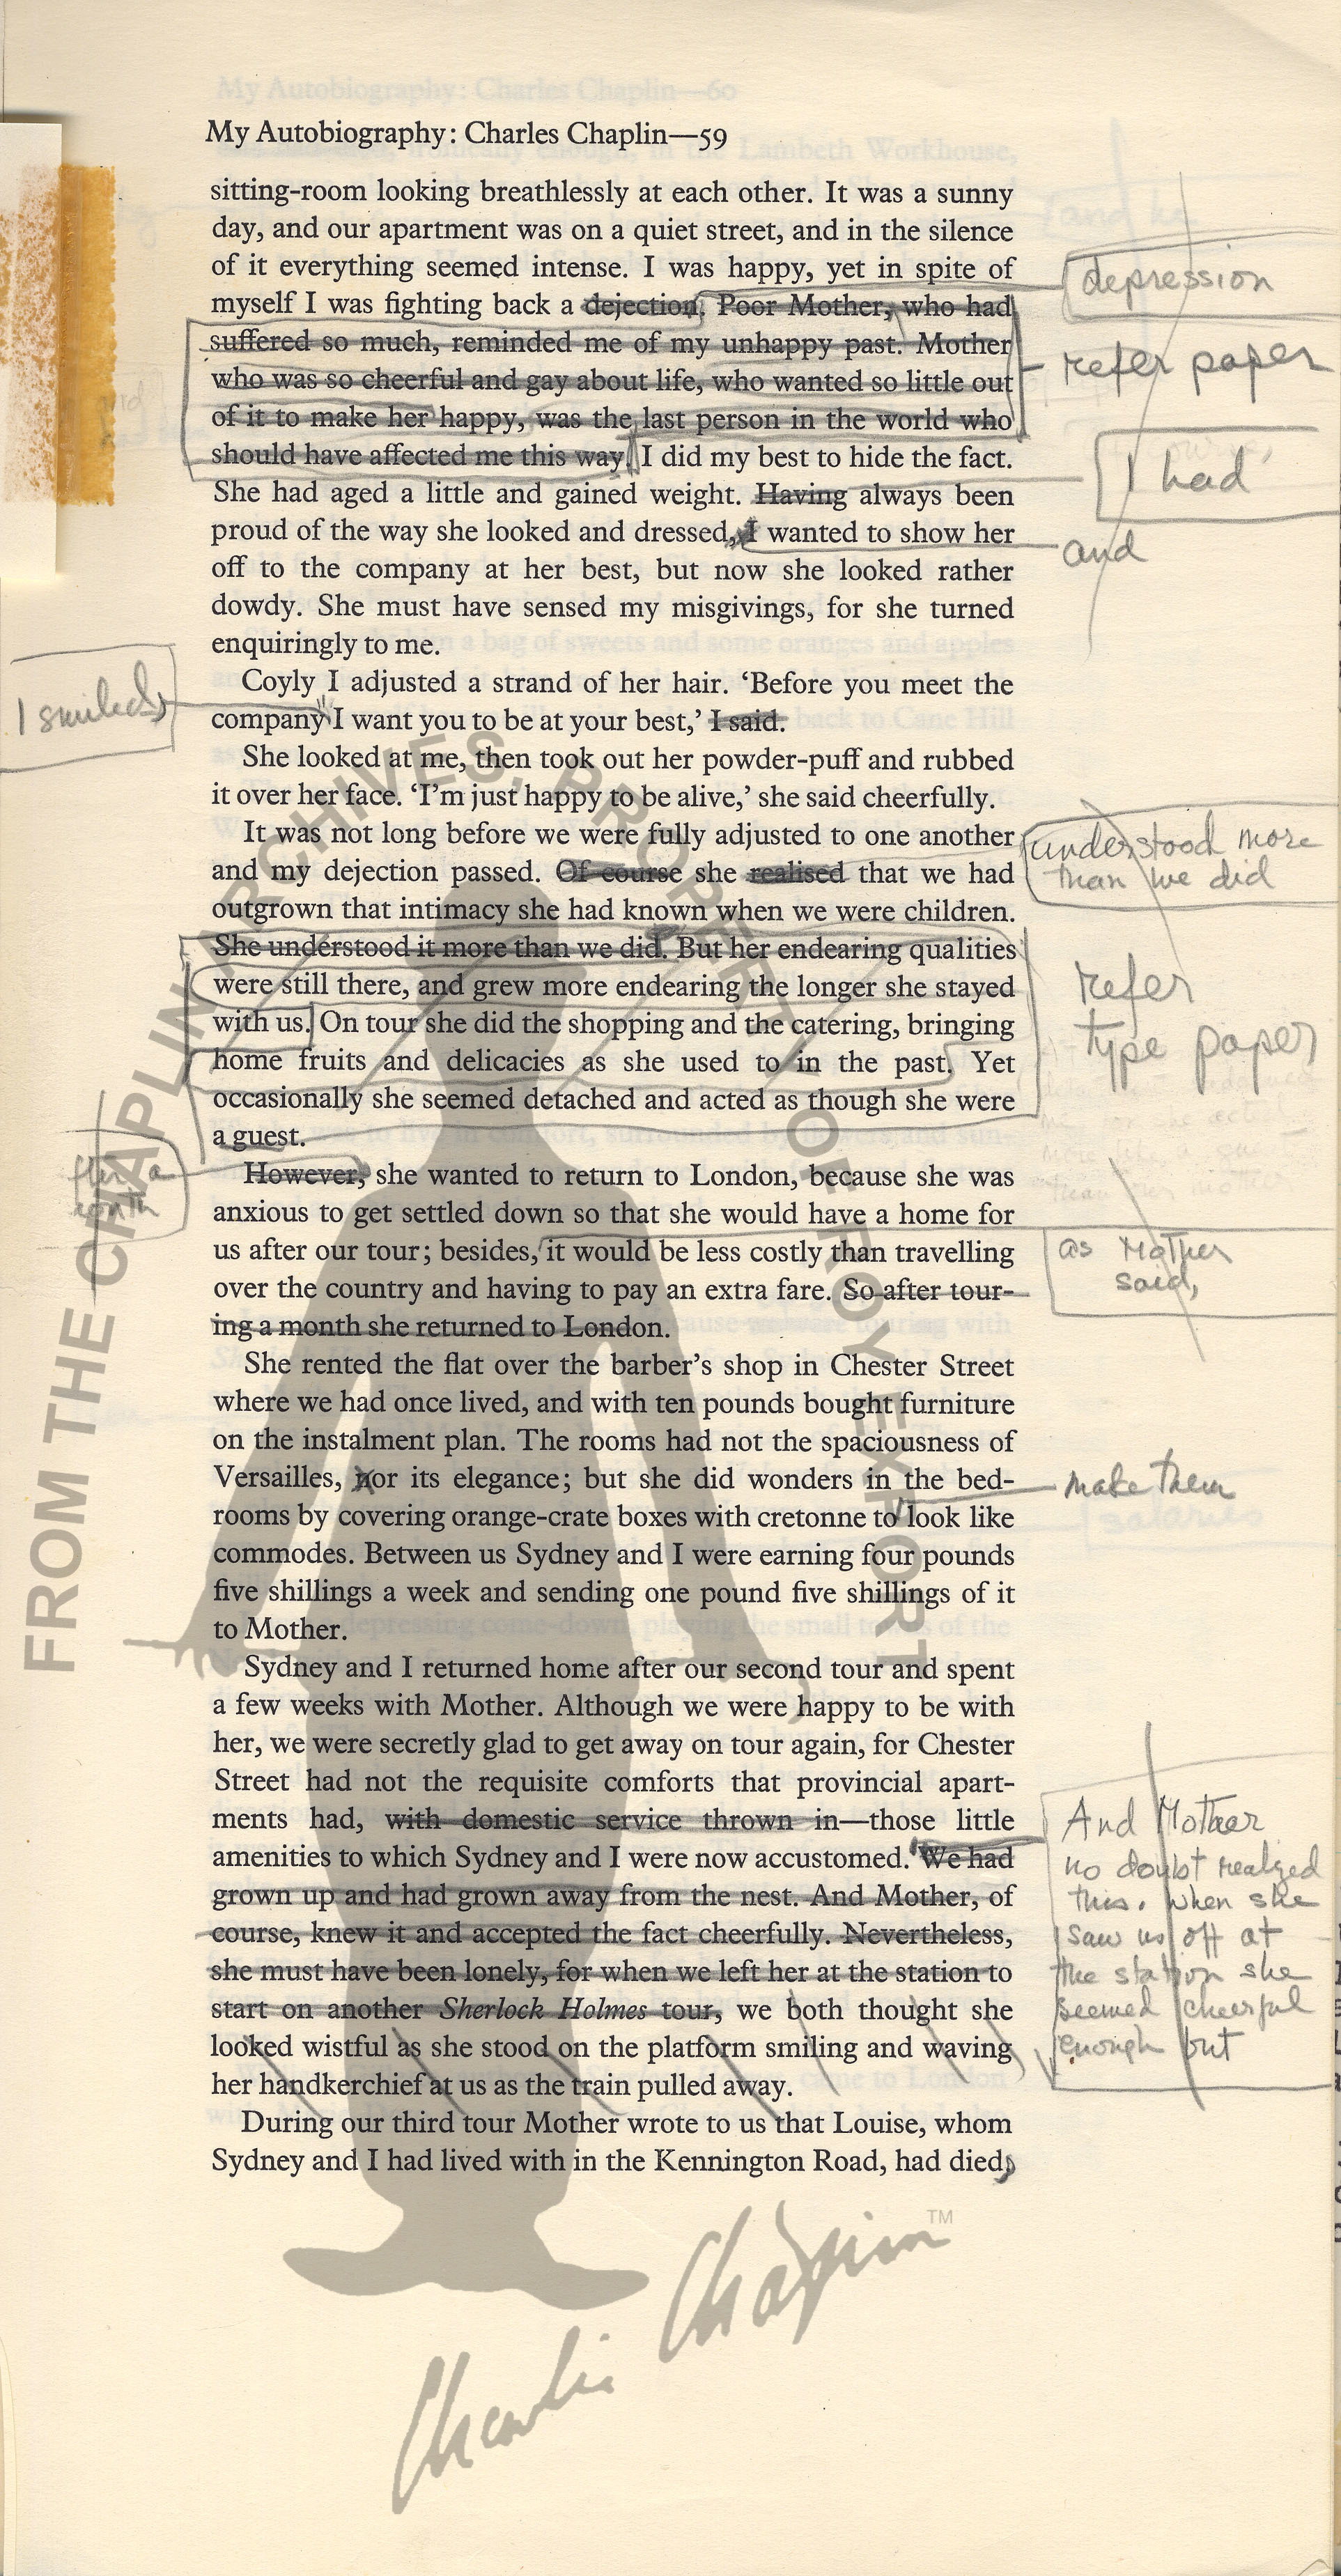 My Autobiography: Charles Chaplin—59
sitting-room looking breathlessly at each other. It was a sunny
day, and our apartment was on a quiet street, and in the silence
of it everything seemed intense. I was happy, yet in spite of
depression
myself I was fighting back a dejection. Poor Mother, who had
suffered so much, reminded me of my unhappy past. Mother
refer paper
who was so cheerful and gay about life, who wanted so little out
of it to make her happy, was the last person in the world who
should have affected me this way. I did my best to hide the fact.
I had
She had aged a little and gained weight. Having always been
proud of the way she looked and dressed, I wanted to show her
and
off to the company at her best, but now she looked rather
dowdy. She must have sensed my misgivings, for she turned
enquiringly to me.
Coyly I adjusted a strand of her hair. ‘Before you meet the
I smiled,
company I want you to be at your best,’ I said.
She looked at me, then took out her powder-puff and rubbed
it over her face. ‘I’m just happy to be alive,’ she said cheerfully.
It was not long before we were fully adjusted to one another
understood more
than we did
and my dejection passed. Of course she realised that we had
outgrown that intimacy she had known when we were children.
She understood it more than we did. But her endearing qualities
were still there, and grew more endearing the longer she stayed
refer
type paper
with us. On tour she did the shopping and the catering, bringing
home fruits and delicacies as she used to in the past. Yet
occasionally she seemed detached and acted as though she were
a guest.
However, she wanted to return to London, because she was
anxious to get settled down so that she would have a home for
us after our tour; besides, it would be less costly than travelling
as Mother
said,
over the country and having to pay an extra fare. So after tour-
ing a month she returned to London.
She rented the flat over the barber’s shop in Chester Street
where we had once lived, and with ten pounds bought furniture
on the instalment plan. The rooms had not the spaciousness of
Versailles, nor its elegance; but she did wonders in the bed-
make them
rooms by covering orange-crate boxes with cretonne to look like
commodes. Between us Sydney and I were earning four pounds
five shillings a week and sending one pound five shillings of it
to Mother.
Sydney and I returned home after our second tour and spent
a few weeks with Mother. Although we were happy to be with
her, we were secretly glad to get away on tour again, for Chester
Street had not the requisite comforts that provincial apart-
ments had, with domestic service thrown in—those little
amenities to which Sydney and I were now accustomed. We had
grown up and had grown away from the nest. And Mother, of
course, knew it and accepted the fact cheerfully. Nevertheless,
she must have been lonely, for when we left her at the station to
start on another Sherlock Holmes tour, we both thought she
looked wistful as she stood on the platform smiling and waving
her handkerchief at us as the train pulled away.
And Mother
no doubt realized
this. when she
saw us off at
the station she
seemed cheerful
enough but
During our third tour Mother wrote to us that Louise, whom
Sydney and I had lived with in the Kennington Road, had died,
FROM THE CHAPLIN ARCHIVES, PROPERTY OF ROY EXPORT
Charlie Chaplin TM